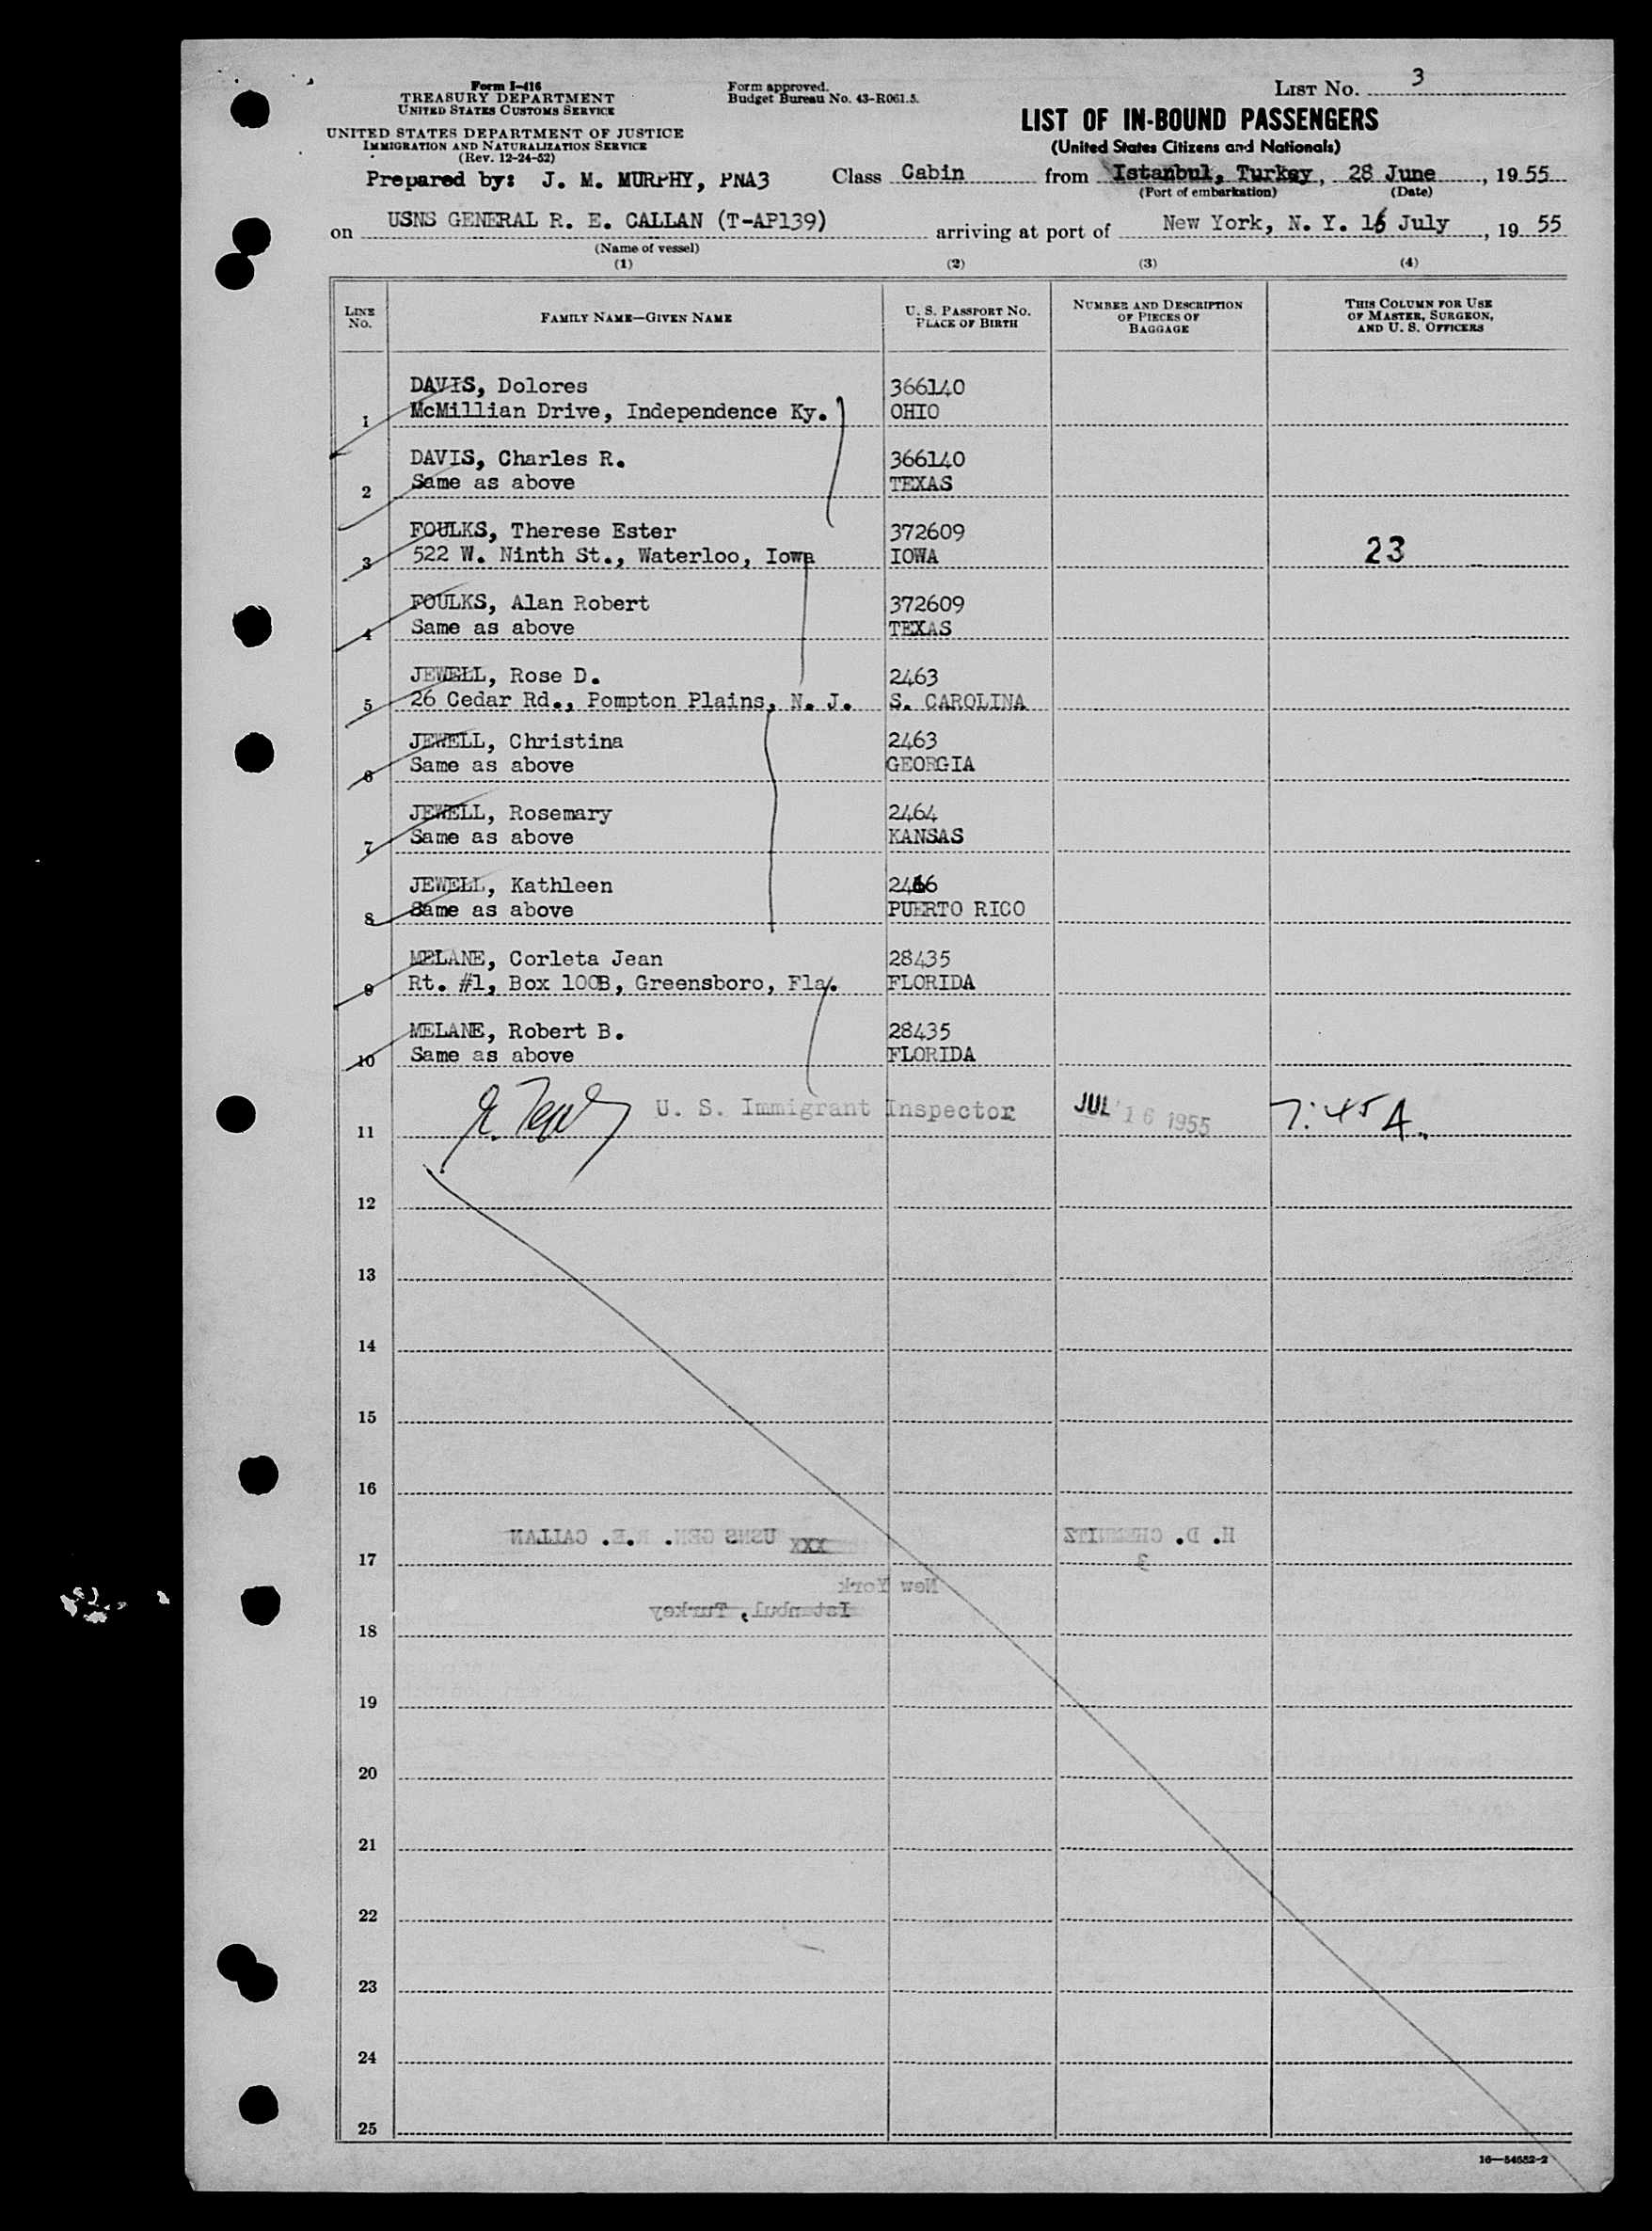 Form I-416
TREASURY DEPARTMENT
UNITED STATES CUSTOMS SERVICE
UNITED STATES DEPARTMENT OF JUSTICE
IMMIGRATION AND NATURALIZATION SERVICE
(Rev. 12-24-52)
Form approved.
Budget Bureau No. 43-R061.5.
LIST NO. 3
LIST OF IN-BOUND PASSENGERS
(United States Citizens and Nationals)
Prepared by: J. M. MURPHY, PNA3
Class Cabin from Istanbul, Turkey, 28 June, 19 55
(Port of embarkation) (Date)
on USNS GENERAL R. E. CALLAN (T-AP139) arriving at port of New York, N. Y. 16 July, 19 55
(Name of vessel)
(1) (2) (3) (4)
LINE NO.
FAMILY NAME—GIVEN NAME
U. S. PASSPORT NO.
PLACE OF BIRTH
NUMBER AND DESCRIPTION
OF PIECES OF
BAGGAGE
THIS COLUMN FOR USE
OF MASTER, SURGEON,
AND U. S. OFFICERS
DAVIS, Dolores 366140
1 McMillian Drive, Independence Ky. OHIO
DAVIS, Charles R. 366140
2 Same as above TEXAS
FOULKS, Therese Ester 372609
3 522 W. Ninth St., Waterloo, Iowa IOWA 23
FOULKS, Alan Robert 372609
4 Same as above TEXAS
JEWELL, Rose D. 2463
5 26 Cedar Rd., Pompton Plains, N. J. S. CAROLINA
JEWELL, Christina 2463
6 Same as above GEORGIA
JEWELL, Rosemary 2464
7 Same as above KANSAS
JEWELL, Kathleen 2466
8 Same as above PUERTO RICO
MELANE, Corleta Jean 28435
9 Rt. #1, Box 100B, Greensboro, Fla. FLORIDA
MELANE, Robert B. 28435
10 Same as above FLORIDA
11 U. S. Immigrant Inspector JUL 16 1955 7:45 A.
12
13
14
15
16
XXX USNS GEN. R.E. CALLAN
17
3
New York
Istanbul, Turkey
18
19
20
21
22
23
24
25
16—54652-2